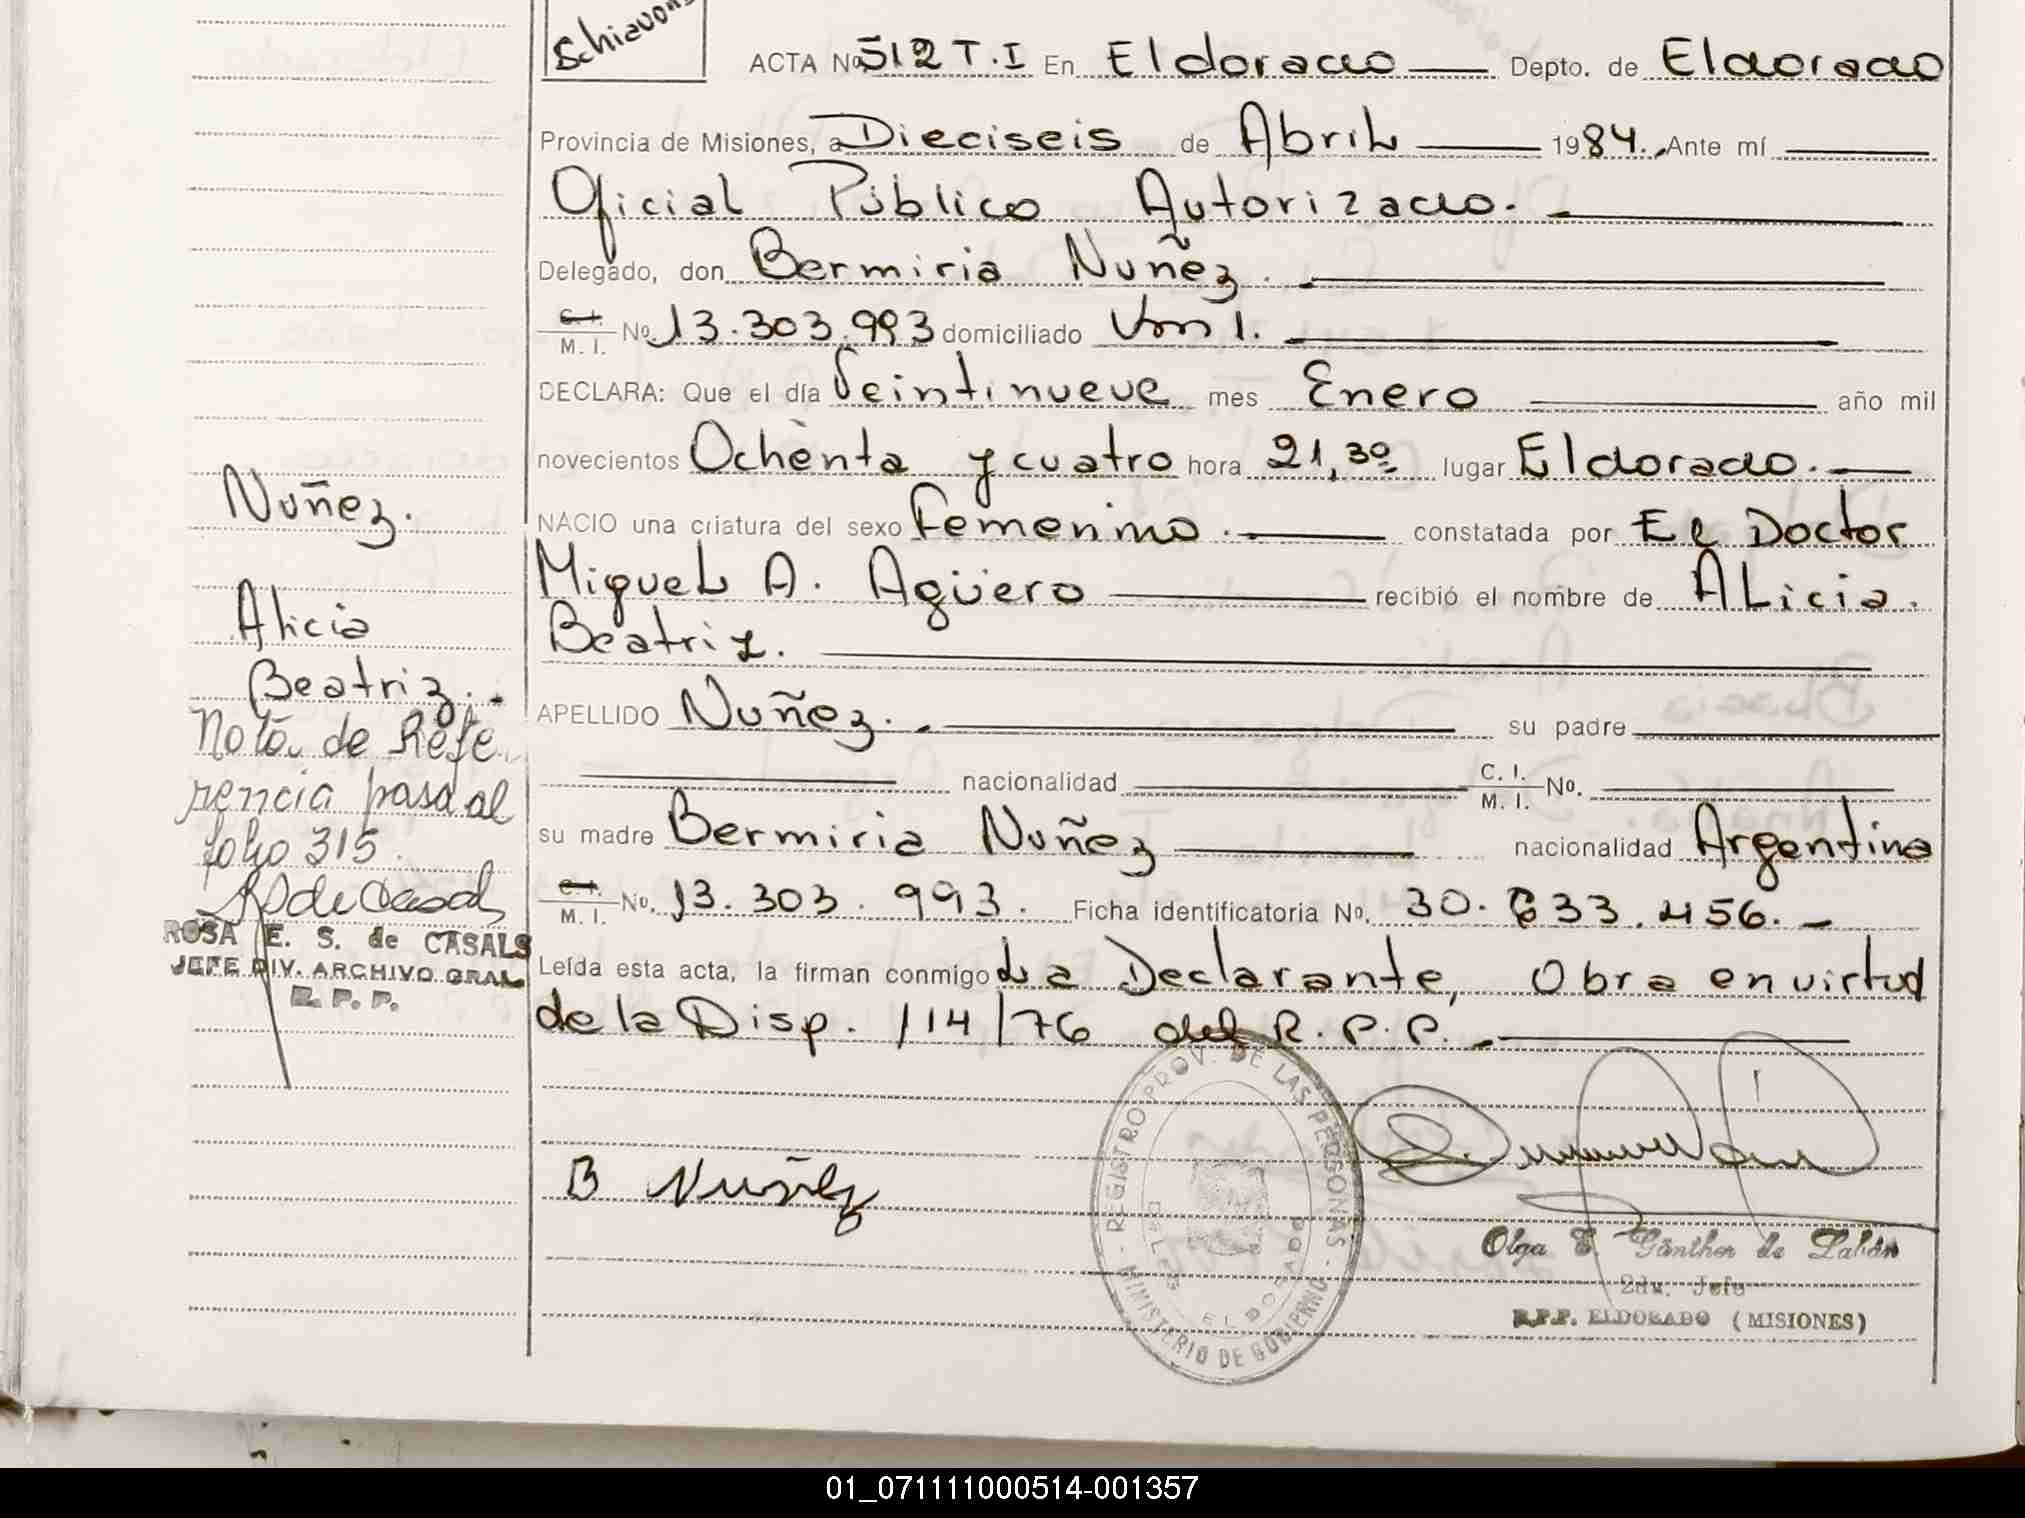 Schiavoni
ACTA No. 512 T.I En Eldorado Depto. de Eldorado
Provincia de Misiones, a Dieciseis de Abril 1984. Ante mí
Oficial Público Autorizado.
Delegado, don Bermiria Nuñez.
C.I. M.I. No. 13.303.993 domiciliado
DECLARA: Que el día Veintinueve mes Enero año mil
novecientos Ochenta y cuatro hora 21,30 lugar Eldorado.
NACIO una criatura del sexo Femenino. constatada por El Doctor
Miguel A. Agüero recibió el nombre de Alicia.
Beatriz.
APELLIDO Nuñez. su padre
nacionalidad C. I. M. I. No.
su madre Bermiria Nuñez nacionalidad Argentina
C.I. M.I. No. 13.303.993. Ficha identificatoria No. 30.633.456.
Leída esta acta, la firman conmigo La Declarante, Obra en virtud
de la Disp. 114/76 del R.P.P.
Nuñez.
Alicia
Beatriz.
Nota de Refe
rencia pasa al
folio 315.
ROSA E. S. de CASALS
JEFE DIV. ARCHIVO GRAL
R. P. P.
B Nuñez
REGISTRO PROV. DE LAS PERSONAS - MINISTERIO DE GOBIERNO -
ELDORADO
Olga E. Günther de Labán
2da. Jefe
R.P.P. ELDORADO (MISIONES)
01_071111000514-001357